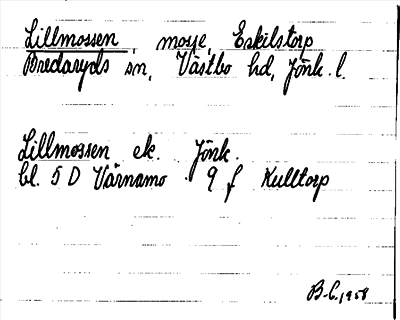 Lillmossen, mosse, Eskilstorp
Bredaryds sn, Västbo hd, Jönk. l.
Lillmossen ek. Jönk.
bl. 5 D Värnamo 9 f Kulltorp
B.C. 1958